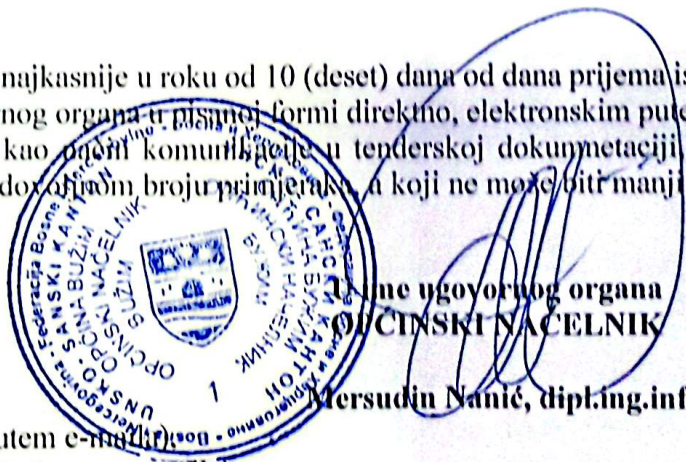 najkasnije u roku od 10 (deset) dana od dana prijema
nog organa u pisanoj formi direktno, elektronskim
kao način komunikacije u tenderskoj dokumnetaciji,
dovoljnom broju primjeraka, a koji ne može biti manji
U ime ugovornog organa
OPĆINSKI NAČELNIK
Mersudin Nanić, dipl.ing.inf
utem e-maila),
Bosna i Hercegovina - Federacija Bosne i Hercegovine
UNSKO - SANSKI KANTON
OPĆINA BUŽIM
OPĆINSKI NAČELNIK
BUŽIM
САНСКИ КАНТОН
ОПЋИНА БУЖИМ
ОПЋИНСКИ НАЧЕЛНИК
БУЖИМ
1